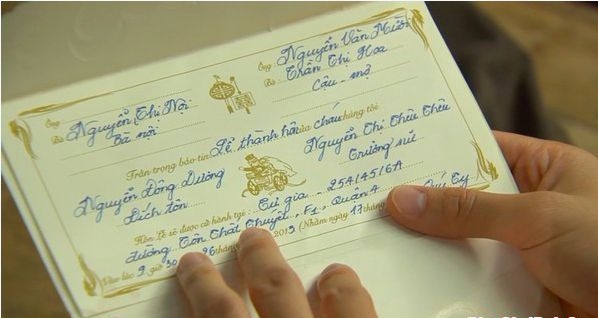 Ông Nguyễn Văn Mười
Bà Trần Thị Hoa
Cậu - mợ
Ông
Bà Nguyễn Thị Nội
Bà nội
Trân trọng báo tin Lễ thành hôn của cháu chúng tôi
Nguyễn Đông Dương
Đích tôn
Nguyễn Thị Châu Châu
Trưởng nữ
Hôn Lễ sẽ được cử hành tại: Tư gia - 25A/45/6A
đường Tôn Thất Thuyết, F1, Quận 4
Vào lúc 9 giờ 30 26 tháng 2013 (Nhằm ngày 17 tháng Quý Tỵ